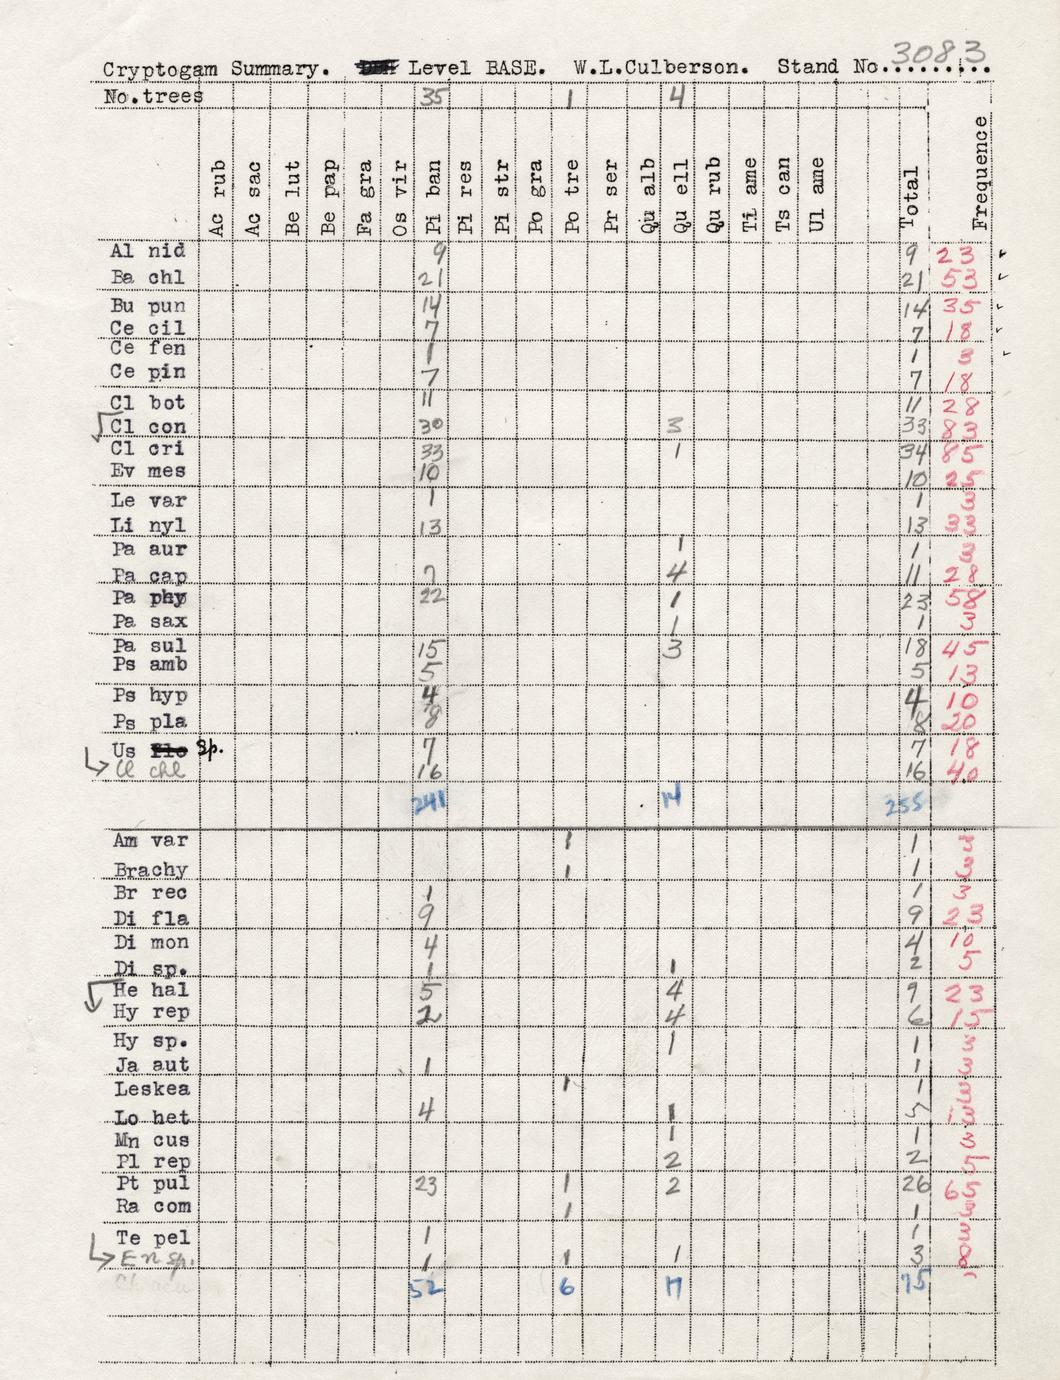 Cryptogam Summary. Level BASE. W.L.Culberson. Stand No......... 3083
No.trees 35 1 4
Ac rub Ac sac Be lut Be pap Fa gra Os vir Pi ban Pi res Pi str Po gra Po tre Pr ser Qu alb Qu ell Qu rub Ti ame Ts can Ul ame Total Frequence
Al nid 9 9 23
Ba chl 21 21 53
Bu pun 14 14 35
Ce cil 7 7 18
Ce fen 1 1 3
Ce pin 7 7 18
Cl bot 11 11 28
Cl con 30 3 33 83
Cl cri 33 1 34 85
Ev mes 10 10 25
Le var 1 1 3
Li nyl 13 13 33
Pa aur 1 1 3
Pa cap 7 4 11 28
Pa phy 22 1 23 58
Pa sax 1 1 3
Pa sul 15 3 18 45
Ps amb 5 5 13
Ps hyp 4 4 10
Ps pla 8 8 20
Us sp. 7 7 18
Cl chl 16 16 40
241 14 255
Am var 1 1 3
Brachy 1 1 3
Br rec 1 1 3
Di fla 9 9 23
Di mon 4 4 10
Di sp. 1 1 2 5
He hal 5 4 9 23
Hy rep 2 4 6 15
Hy sp. 1 1 3
Ja aut 1 1 3
Leskea 1 1 3
Lo het 4 1 5 13
Mn cus 1 1 3
Pl rep 2 2 5
Pt pul 23 1 2 26 65
Ra com 1 1 3
Te pel 1 1 3
En sp. 1 1 1 3 8
52 6 17 75